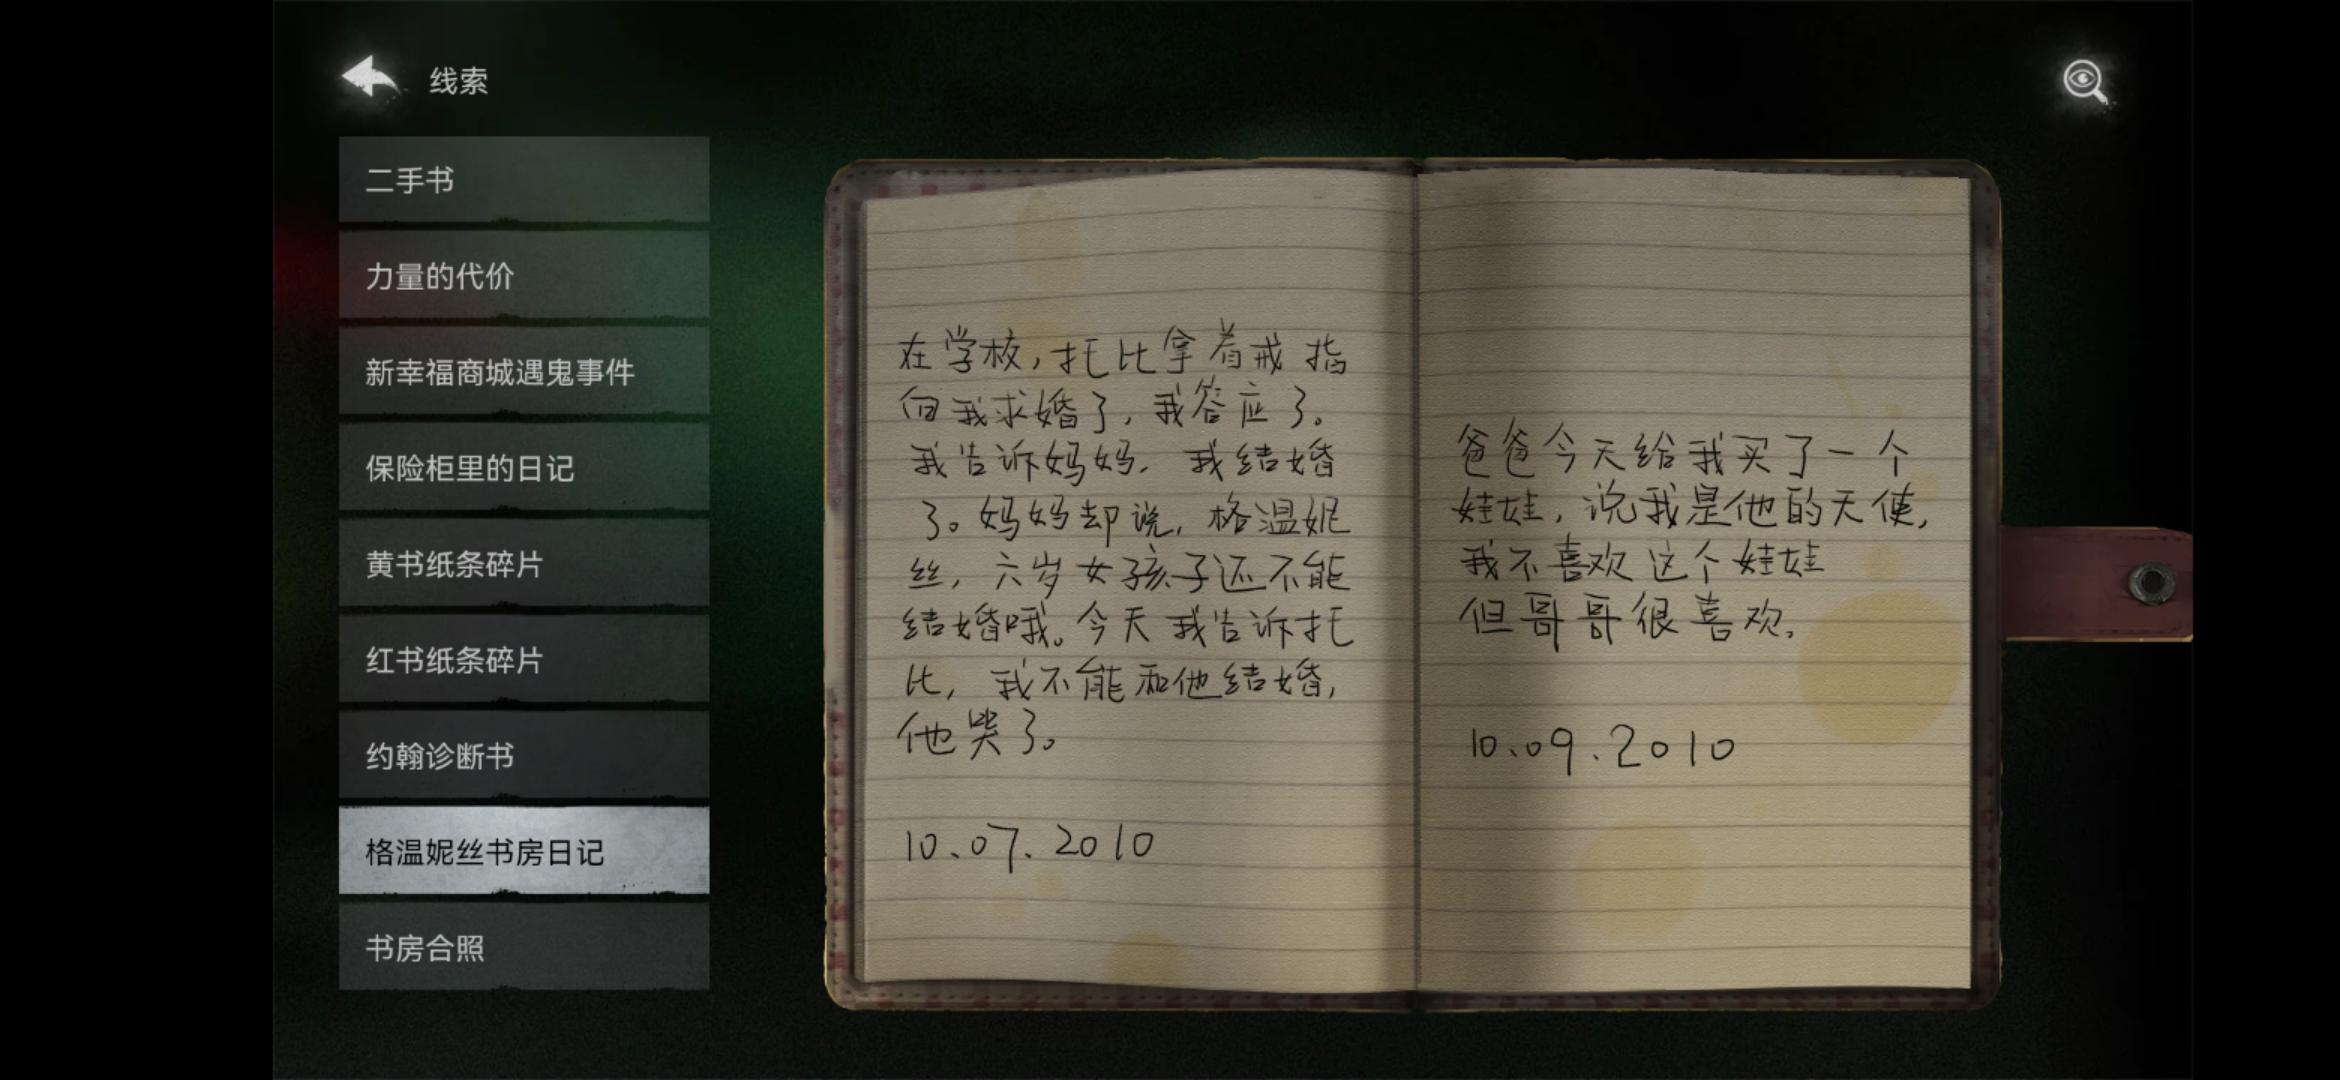 线索
二手书
力量的代价
新幸福商城遇鬼事件
保险柜里的日记
黄书纸条碎片
红书纸条碎片
约翰诊断书
格温妮丝书房日记
书房合照
在学校,托比拿着戒指
向我求婚了,我答应了。
我告诉妈妈,我结婚
了。妈妈却说,格温妮
丝,六岁女孩子还不能
结婚哦。今天我告诉托
比,我不能和他结婚,
他哭了。
10.07.2010
爸爸今天给我买了一个
娃娃,说我是他的天使,
我不喜欢这个娃娃
但哥哥很喜欢.
10.09.2010